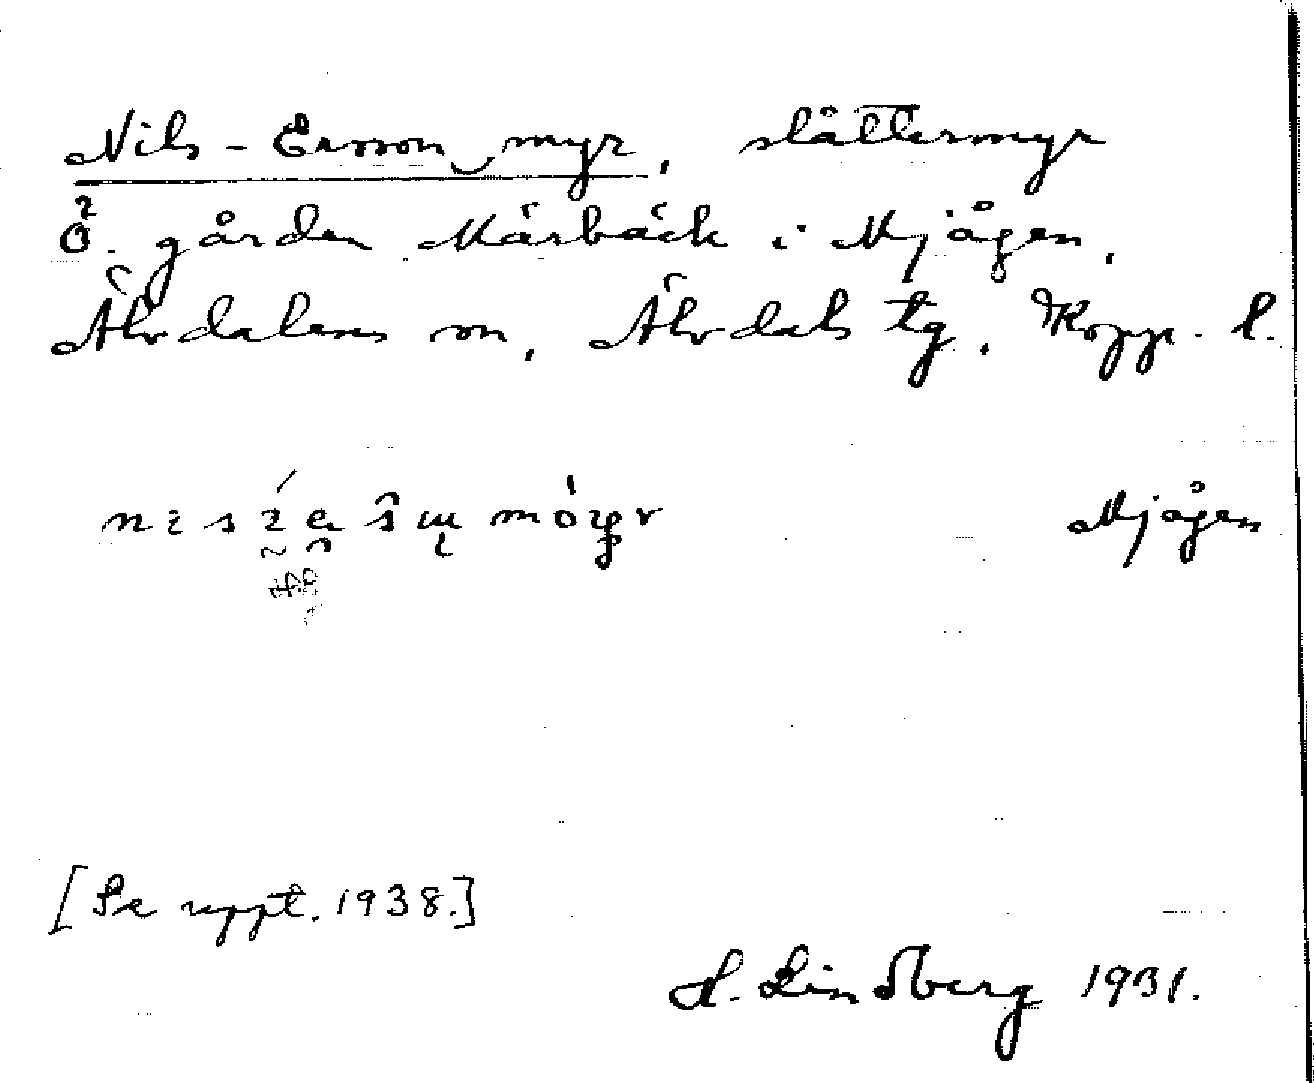 Nils-Ersson myr, slåttermyr
Ö. gården Märbäck i Mjågen,
Älvdalens sn, Älvdals tg. Kopp. l.
Mjågen
[Se uppt. 1938.]
H. Lindberg 1931.